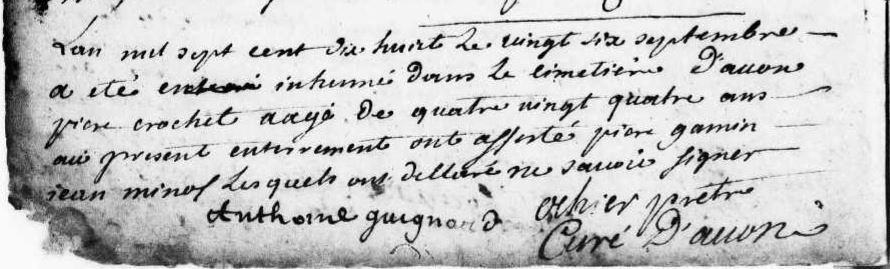 Lan mil sept cent dix huit le vingt six septembre
a eté inhumé dans le cimetiére D'avon
piere crochet aagé De quatre vingt quatre ans
au present enterrement ont assesté piere gamin
jean minos Lesquels ont dellaré ne savoir signer
Anthoine guignard prètre
Curé D'avon